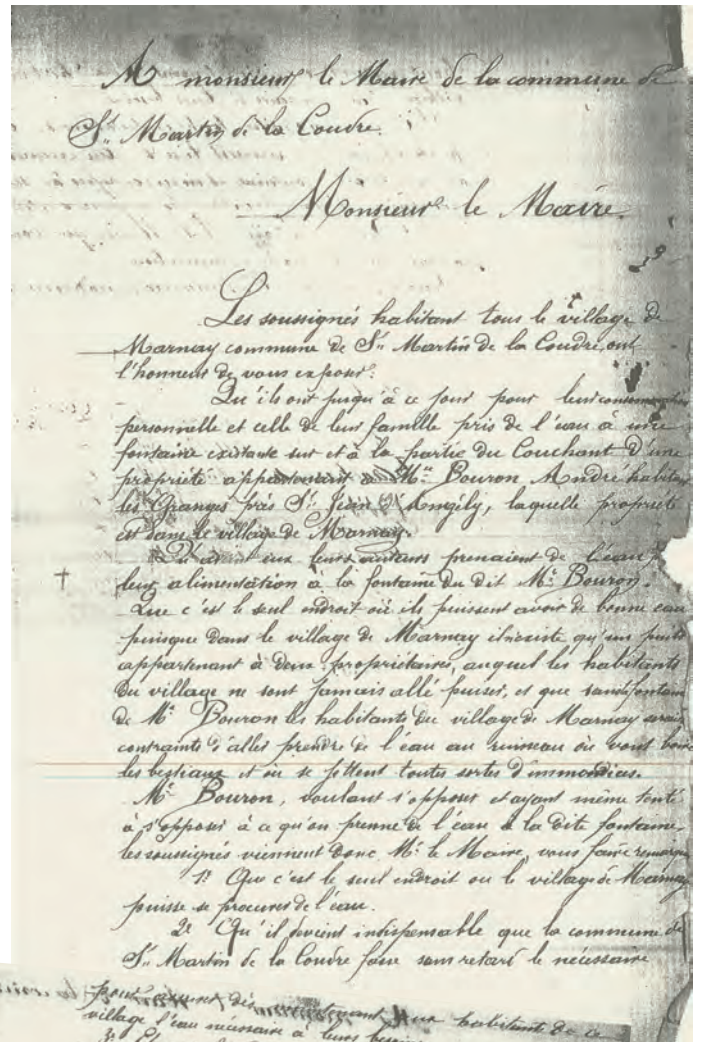 A monsieur le Maire de la commune de
St Martin de la Coudre.
Monsieur le Maire.
Les soussignés habitant tous le village de
Marnay commune de St Martin de la Coudre, ont
l'honneur de vous exposer:
Qu'ils ont jusqu'à ce jour pour leur consommation
personnelle et celle de leur famille pris de l'eau à une
fontaine existante sur et à la partie du Couchant d'une
propriété appartenant à Mr Bouron André habitant
les Granges près St Jean d'Angély, laquelle propriété
est dans le village de Marnay.
Qu'avant eux leurs auteurs prenaient de l'eau
leur alimentation à la fontaine du dit Mr Bouron.
Que c'est le seul endroit où ils puissent avoir de bonne eau
puisque dans le village de Marnay il n'existe qu'un puits
appartenant à deux propriétaires, auquel les habitants
du village ne sont jamais allé puiser, et que sans
de Mr Bouron les habitants du village de Marnay
contraints d'aller prendre de l'eau au ruisseau où vont boire
les bestiaux et où se jettent toutes sortes d'immondices.
Mr Bouron, voulant s'opposer et ayant même tenté
à s'opposer à ce qu'on prenne de l'eau à la dite fontaine,
les soussignés viennent donc Mr le Maire, vous faire remarquer
1º Que c'est le seul endroit ou le village de Marnay
puisse se procurer de l'eau.
2º Qu'il devient indispensable que la commune de
St Martin de la Coudre fasse sans retard le nécessaire
pour dès maintenant aux habitants de ce
village l'eau nécessaire à leurs besoins